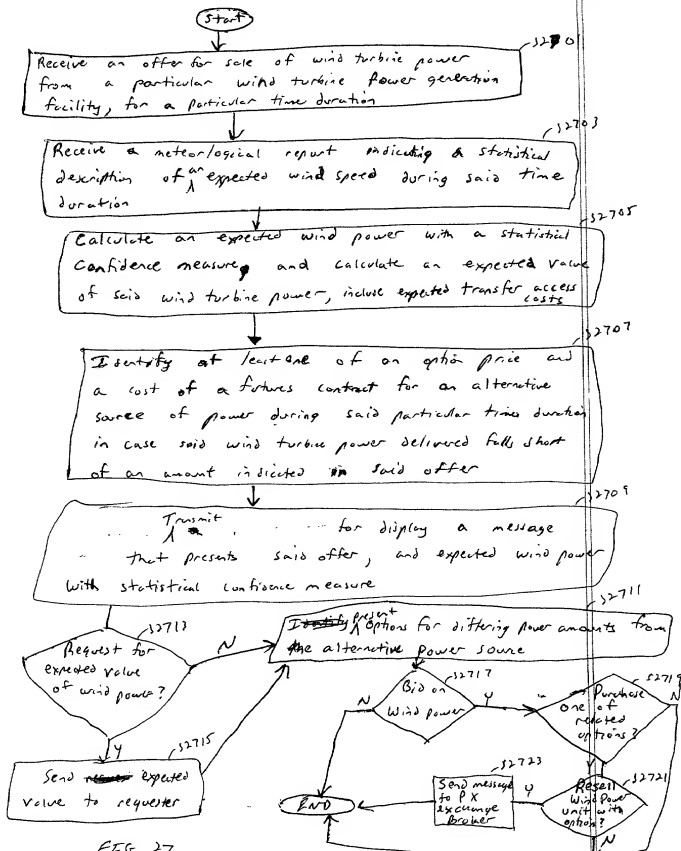 Start
S2701
Receive an offer for sale of wind turbine power
from a particular wind turbine power generation
facility, for a particular time duration
S2703
Receive a meteorlogical report indicating a statistical
description of an expected wind speed during said time
duration
S2705
Calculate an expected wind power with a statistical
Confidence measure, and calculate an expected value
of said wind turbine power, include expected transfer access
costs
S2707
Identify at least one of an option price and
a cost of a futures contract for an alternative
source of power during said particular time duration
in case said wind turbine power delivered falls short
of an amount indicated in said offer
S2709
Transmit for display a message
that presents said offer, and expected wind power
with statistical confidence measure
S2711
present
Options for differing power amounts from
the alternative power source
S2713
Request for
expected value
of wind power?
N
Y
S2715
Send expected
value to requester
S2717
Bid on
Wind Power
N
Y
S2719
Purchase
one of
related
options?
N
Y
S2721
Resell
Wind Power
unit with
option?
Y
N
S2723
Send message
to PX
exchange
Broker
END
FIG. 27